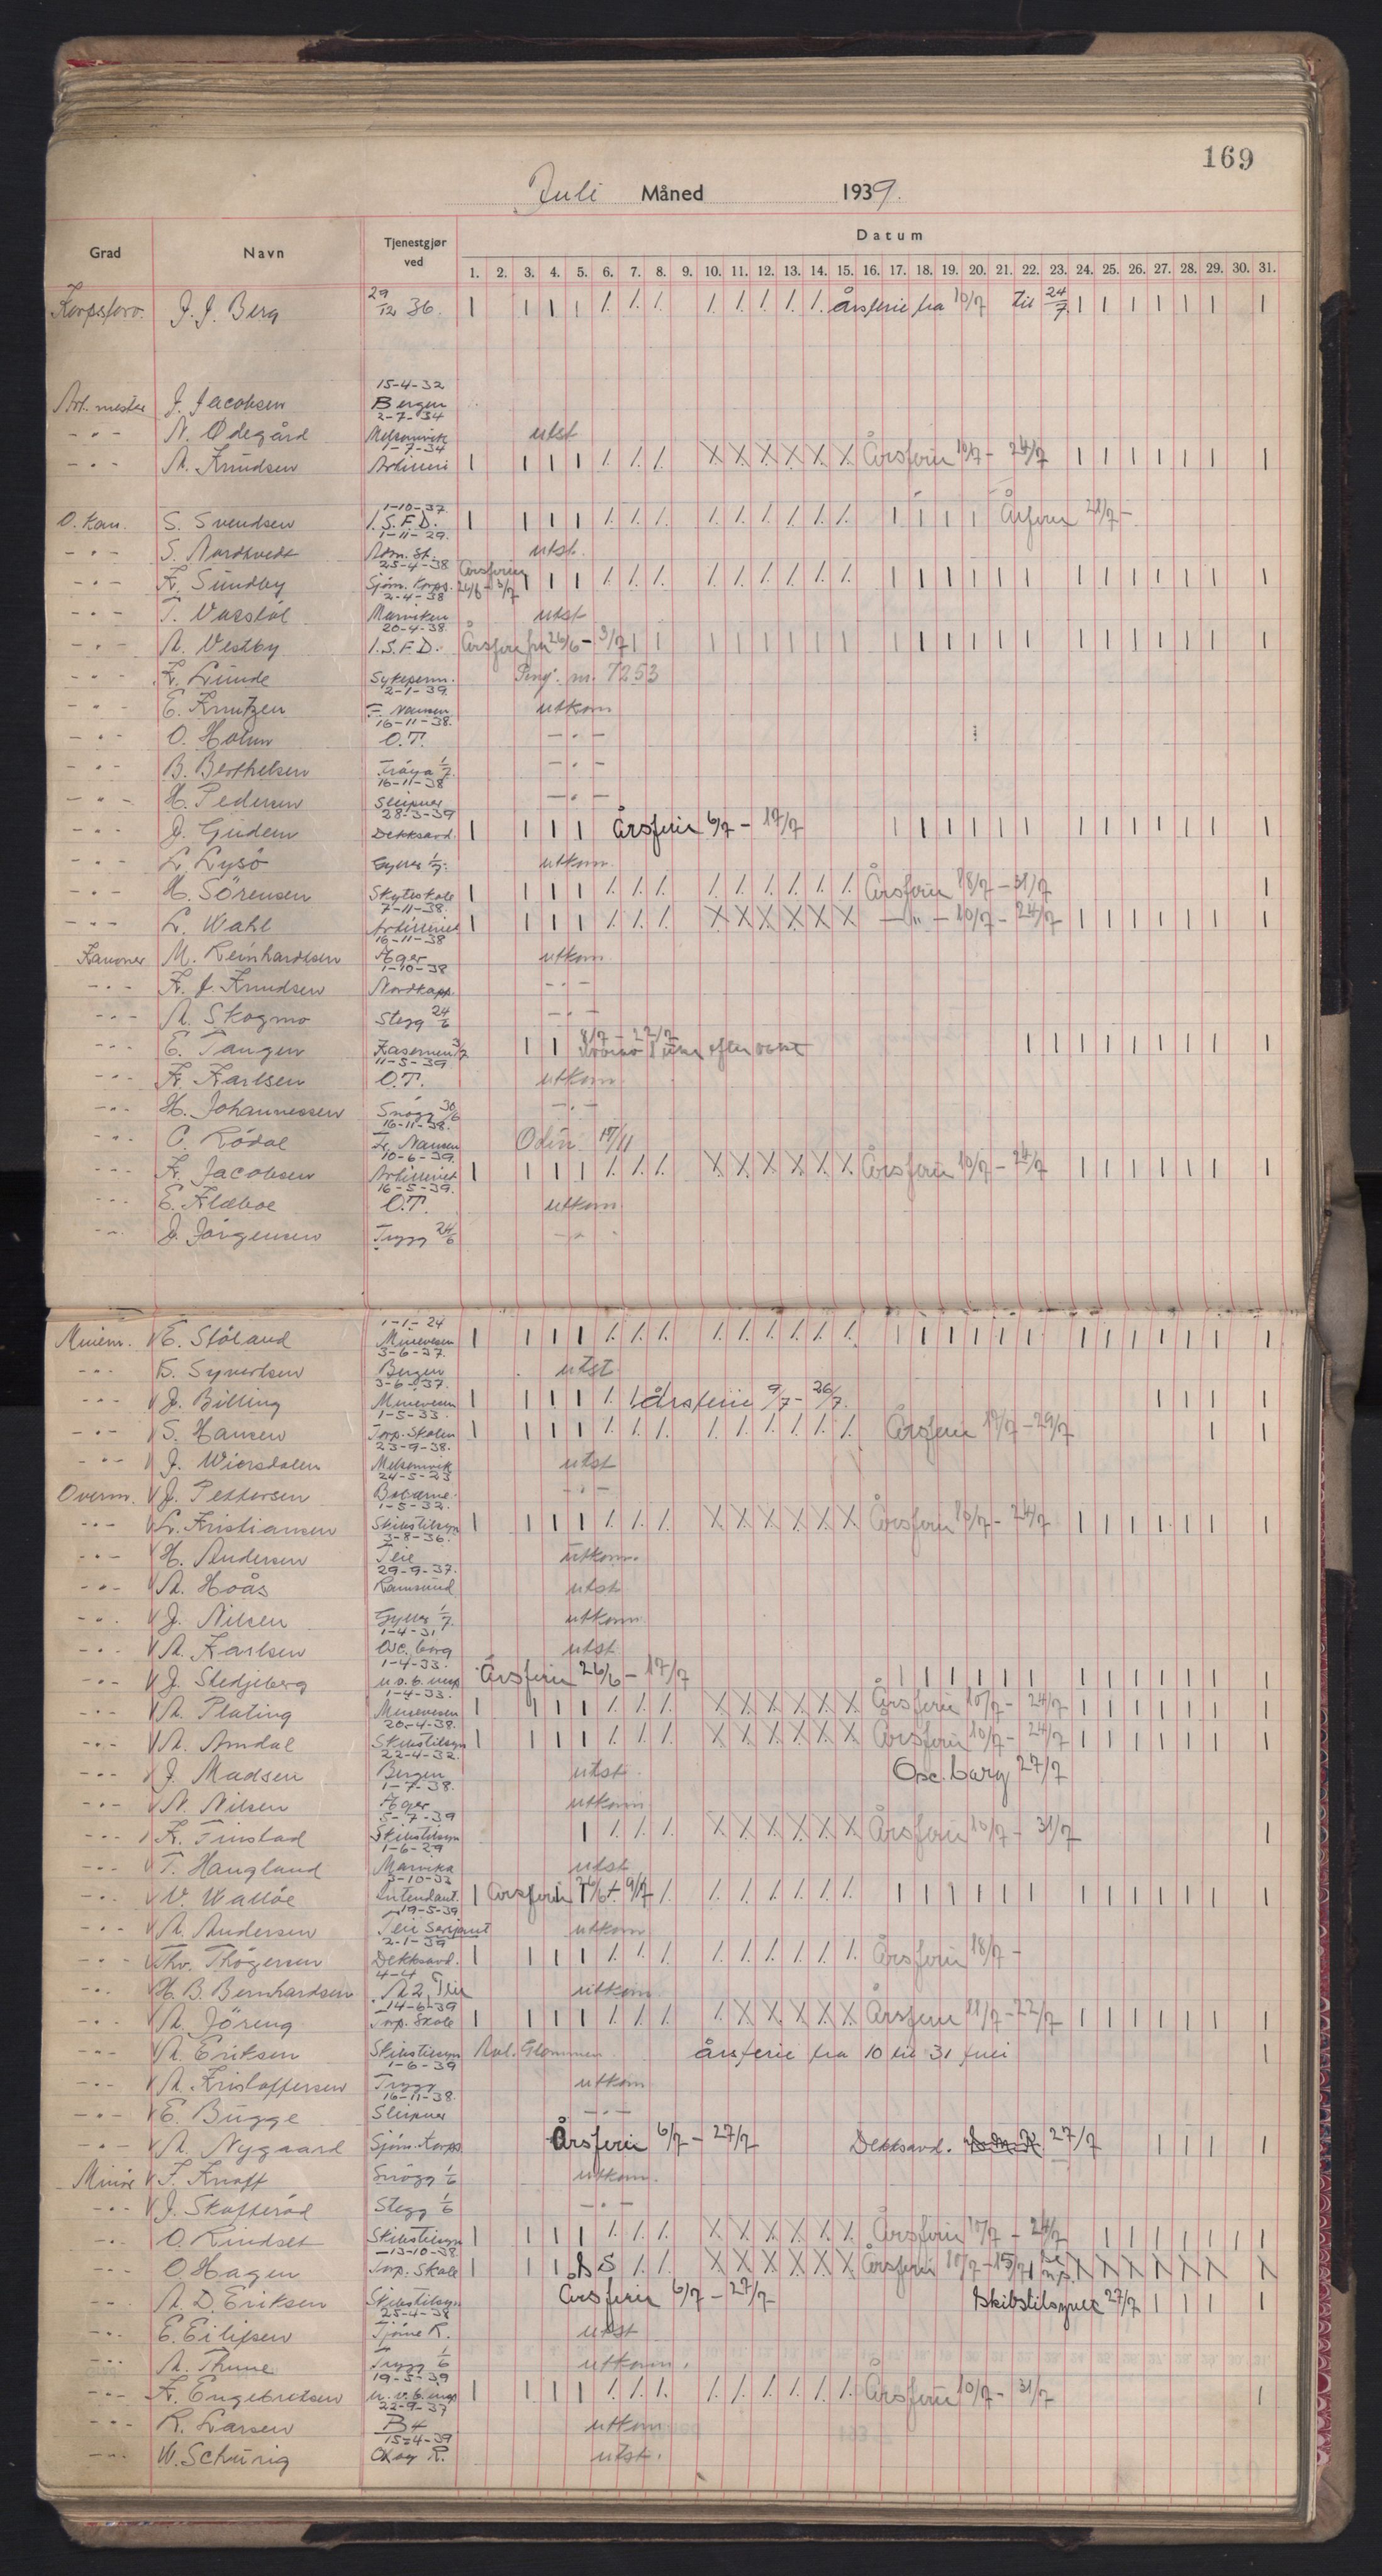 169
Juli Måned 1939.
Grad Navn Tjenestgjør ved Datum
1. 2. 3. 4. 5. 6. 7. 8. 9. 10. 11. 12. 13. 14. 15. 16. 17. 18. 19. 20. 21. 22. 23. 24. 25. 26. 27. 28. 29. 30. 31.
Korpsforv. J. J. Berg 29/12 36. Årsferie fra 10/7 til 24/7
15-4-32
Art. mester J. Jacobsen Bergen
2-7-34
-"- N. Ødegård Melsomvik utst
1-7-34
-"- A. Knudsen Artilleri Årsferie 10/7 - 24/7
1-10-37
O. Kan. S. Svendsen I.S.F.D. Årsferie 21/7 -
1-11-29.
-"- S. Nordtvedt Adm. St. utst.
25-4-38 Årsferie
-"- K. Sundby Sjøm. Korps. 26/6 - 3/7
2-4-38
-"- T. Vasstöl Marviken utst
20-4-38.
-"- A. Vestby I.S.F.D. Årsferie fra 26/6 - 3/7
-"- K. Lunde Sykeperm. Perm. nr. 7253
2-1-39.
-"- E. Knutzen F. Nansen utkom
16-11-38.
-"- O. Holm O.T. -"-
-"- B. Berthelsen Fröya 1/7. -"-
16-11-38
-"- H. Pedersen Sleipner -"-
28-3-39
-"- J. Gudem Dekksavd. Årsferie 6/7 - 17/7
-"- L. Lysö Gyller 1/7. utkom.
-"- H. Sörensen Skyteskole Årsferie 18/7 - 31/7
7-11-38.
-"- L. Wahl Artilleriet -"- 10/7 - 24/7
16-11-38
Kanoner M. Reinhardtsen Æger utkom
1-10-38
-"- K. J. Knudsen Nordkapp. -"-
-"- A. Skogmo Stegg 24/6 -"-
-"- E. Tangen Kasernen 3/7 8/7 - 22/7 uke efter vakt
11-5-39
-"- K. Karlsen O.T. utkom
-"- H. Johannessen Snögg 30/6 -"-
16-11-38.
-"- C. Rödal Fr. Nansen Odin 17/11
10-6-39.
-"- K. Jacobsen Artilleriet Årsferie 10/7 - 24/7
16-5-39.
-"- E. Klæboe O.T. utkom
-"- J. Jörgensen Trygg 24/6 -"-
1-1-24
Minem. E. Stöland Minevesen
3-6-37.
-"- B. Syvertsen Bergen utst
3-6-37.
-"- J. Billing Minevesen Årsferie 9/7 - 26/7.
1-5-33.
-"- S. Hansen Torp. Skolen Årsferie 17/7 - 29/7
23-9-38.
-"- J. Wiersdalen Melsomvik utst
24-5-23
Overm. J. Pettersen Bolærne. -"-
1-5-32.
-"- L. Kristiansen Skibstilsyn Årsferie 10/7 - 24/7
3-8-36.
-"- H. Andersen Teie utkom.
29-9-37.
-"- A. Hoås Ramsund utst
-"- J. Nilsen Gyller 1/7. utkom
1-4-31
-"- A. Karlsen Osc. borg utst
1-4-33.
-"- J. Stedjeberg u.v.b. insp Årsferie 26/6 - 17/7
1-4-33.
-"- A. Plating Minevesen Årsferie 10/7 - 24/7
20-4-38.
-"- A. Amdal Skibstilsyn Årsferie 10/7 - 24/7
22-4-32.
-"- J. Madsen Bergen utst. Osc. borg 27/7
1-7-38.
-"- N. Nilsen Æger utkom
5-7-39
-"- K. Tinstad Skibstilsyn Årsferie 10/7 - 31/7
1-6-29
-"- T. Haugland Marvika utst
3-10-33
-"- V. Wallöe Intendant. Årsferie 26/6 - 9/7
19-5-39
-"- A. Andersen Teie Sersjant utkom
2-1-39
-"- Thv. Thögersen Dekksavd. Årsferie 18/7 -
4-4
-"- H. B. Bernhardsen A 2, Teie utkom
14-6-39
-"- A. Jöreng Torp. Skole Årsferie 11/7 - 22/7
-"- A. Eriksen Skibstilsyn Avl. Glommen Årsferie fra 10 til 31 juli
1-6-39
-"- A. Kristoffersen Trygg utkom
16-11-38
-"- E. Bugge Sleipner -"-
-"- A. Nygaard Sjöm. korps Årsferie 6/7 - 27/7 Dekksavd. 27/7
Minör F. Knoff Snögg 1/6 utkom.
-"- J. Skofteröd Stegg 1/6 -"-
-"- O. Rindset Skibstilsyn Årsferie 10/7 - 24/7
13-10-38
-"- O. Hagen Torp. Skole S Årsferie 10/7 - 15/7
-"- A. D. Eriksen Skibstilsyn Årsferie 6/7 - 27/7 Skibstilsynet 27/7
25-4-38
-"- E. Eilifsen Tjöme K. utst
-"- A. Thune Trygg 1/6 utkom.
19-5-39
-"- K. Engebretsen u.v.b. insp Årsferie 10/7 - 31/7
22-9-37
-"- R. Larsen B4 utkom
15-4-39
-"- W. Schürig Oksøy R. utst.